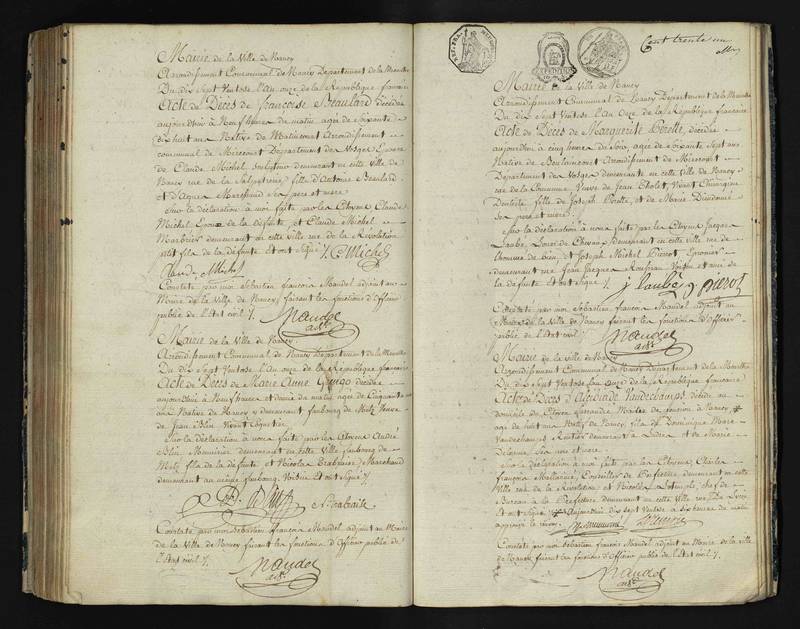 Mairie de la Ville de Nancy
Arrondissement Communal de Nancy Département de la Meurthe
Du dix Sept Ventose l'An onze de la République française
Acte de Décès de françoise Beaulard décédée
aujourdhui à Neuf heures du matin agée de soixante
dix huit ans Native de Mattincourt Arrondissement
communal de Mirecourt Département des Vosges Epouse
de Claude Michel sculpteur demeurant en cette Ville de
Nancy rue de la Salpetriere, fille d'Antoine Beaulard
et d'Agnes Marchand ses pere et mere
Sur la déclaration à moi faite par les Citoyens Claude
Michel Epoux de la défunte, et Claude Michel
Marbrier demeurant en cette Ville rue de la Révolution
fils de la défunte et ont signé /. C Michel
Claude Michel
Constaté par moi Sébastien françois Mandel adjoint au
Maire de la Ville de Nancy, faisant les fonctions d'Officier
public de l'Etat civil /.
Mandel
adt
Mairie de la Ville de Nancy
Arrondissement Communal de Nancy Département de la Meurthe
Du dix Sept Ventose l'An onze de la République française
Acte de Décès de Marie Anne décédée
aujourdhui à Neuf heures et demie du matin agée de Cinquante
ans Native de Nancy y demeurant faubourg de Metz Veuve
de Jean Blin Vivant
Sur la déclaration à moi faite par les Citoyens André
Blin Menuisier demeurant en cette Ville faubourg de
Metz fils de la défunte et Nicolas Marchand
demeurant au meme faubourg Voisin et ont signé /.
Constaté par moi Sébastien françois Mandel adjoint au Maire
de la Ville de Nancy faisant les fonctions d'Officier public de
l'Etat civil /.
Mandel
adt
Cent trente un
Mairie de la Ville de Nancy
Arrondissement Communal de Nancy Département de la Meurthe
Du dix Sept Ventose l'An Onze de la République française
Acte de Décès de Marguerite Perelle, décédée
aujourdhui à cinq heures du soir, agée de soixante Sept ans
Native de Arrondissement de Mirecourt
Département des Vosges demeurante en cette Ville de Nancy
rue de la Commune, Veuve de Jean Vivant Chirurgien
Dentiste fille de Joseph et de Marie
ses pere et mere
Sur la déclaration à nous faite par les Citoyens Jacques
demeurant en cette Ville rue de
et Joseph Michel Pierrot
demeurant rue Jean Jacques Rousseau Voisin et ami de
la défunte et ont signé /. J laubé J pierot
Constaté par moi Sébastien françois Mandel adjoint au
Maire de la Ville de Nancy faisant les fonctions d'Officier
public de l'Etat civil /.
Mandel
adt
Mairie de la Ville de Nancy
Arrondissement Communal de Nancy Département de la Meurthe
Du dix Sept Ventose l'an onze de la République française
Acte de Décès d' Vaudechamps, décédé au
domicile du Citoyen Maitre de pension à Nancy,
agé de huit ans Natif de Nancy, fils de Dominique Marc
Vaudechamps Rentier demeurant à et de Marie
ses pere et mere
Sur la déclaration à moi faite par les Citoyens Charles
françois Conseiller de Préfecture demeurant en cette
Ville rue de la Révolution et Nicolas chef de
Bureau à la Préfecture demeurant en cette Ville rue
Et ont signé Aujourdhui dix Sept Ventose à six heures du matin
Constaté par moi Sébastien françois Mandel adjoint au Maire de la Ville
de Nancy faisant les fonctions d'Officier public de l'Etat civil /.
Mandel
adt